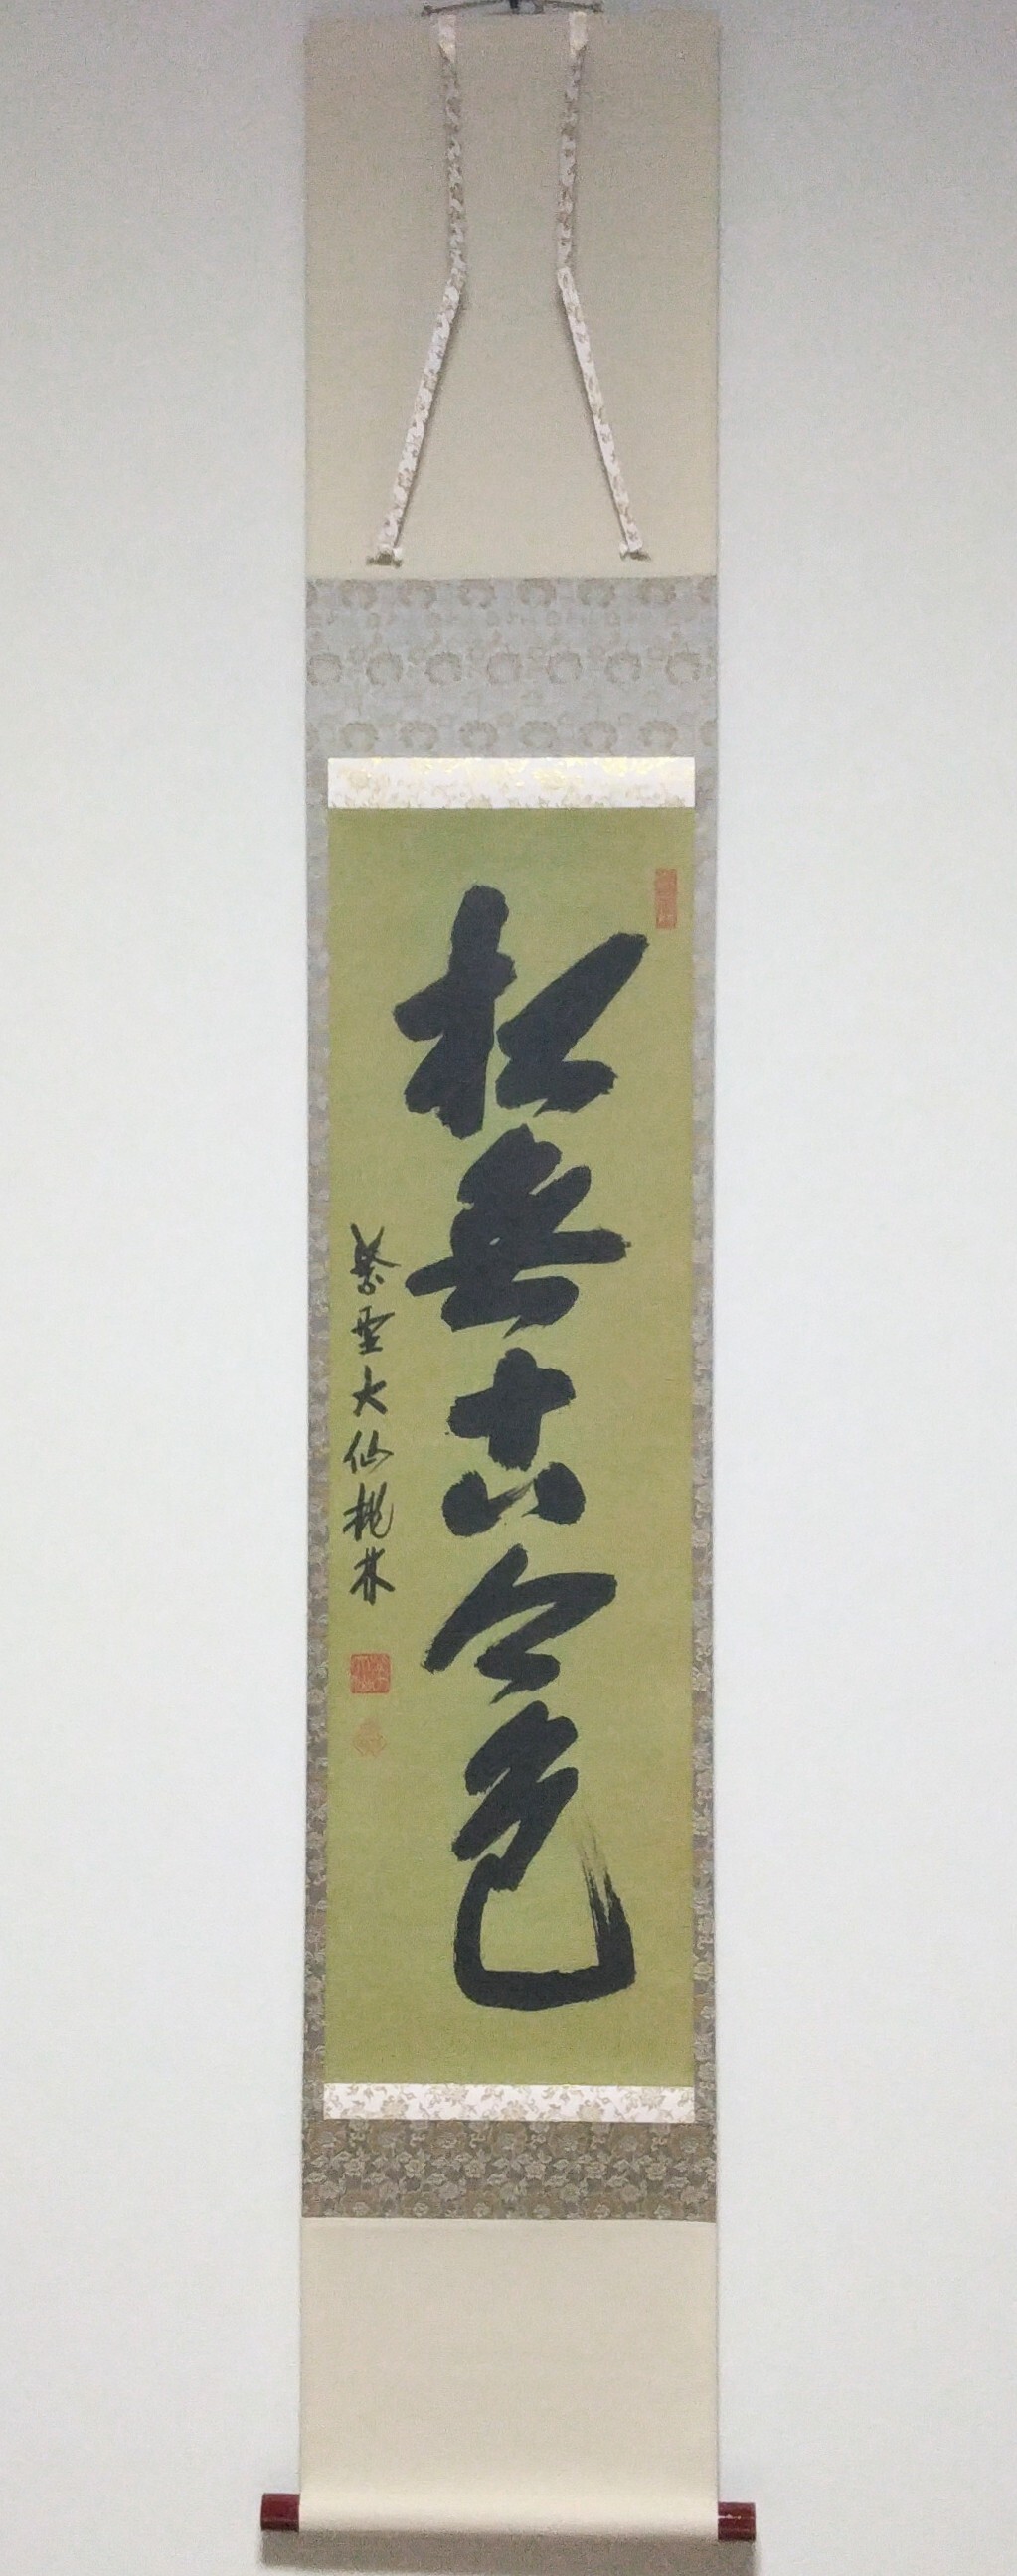 松無古今色
紫野大仙桃林